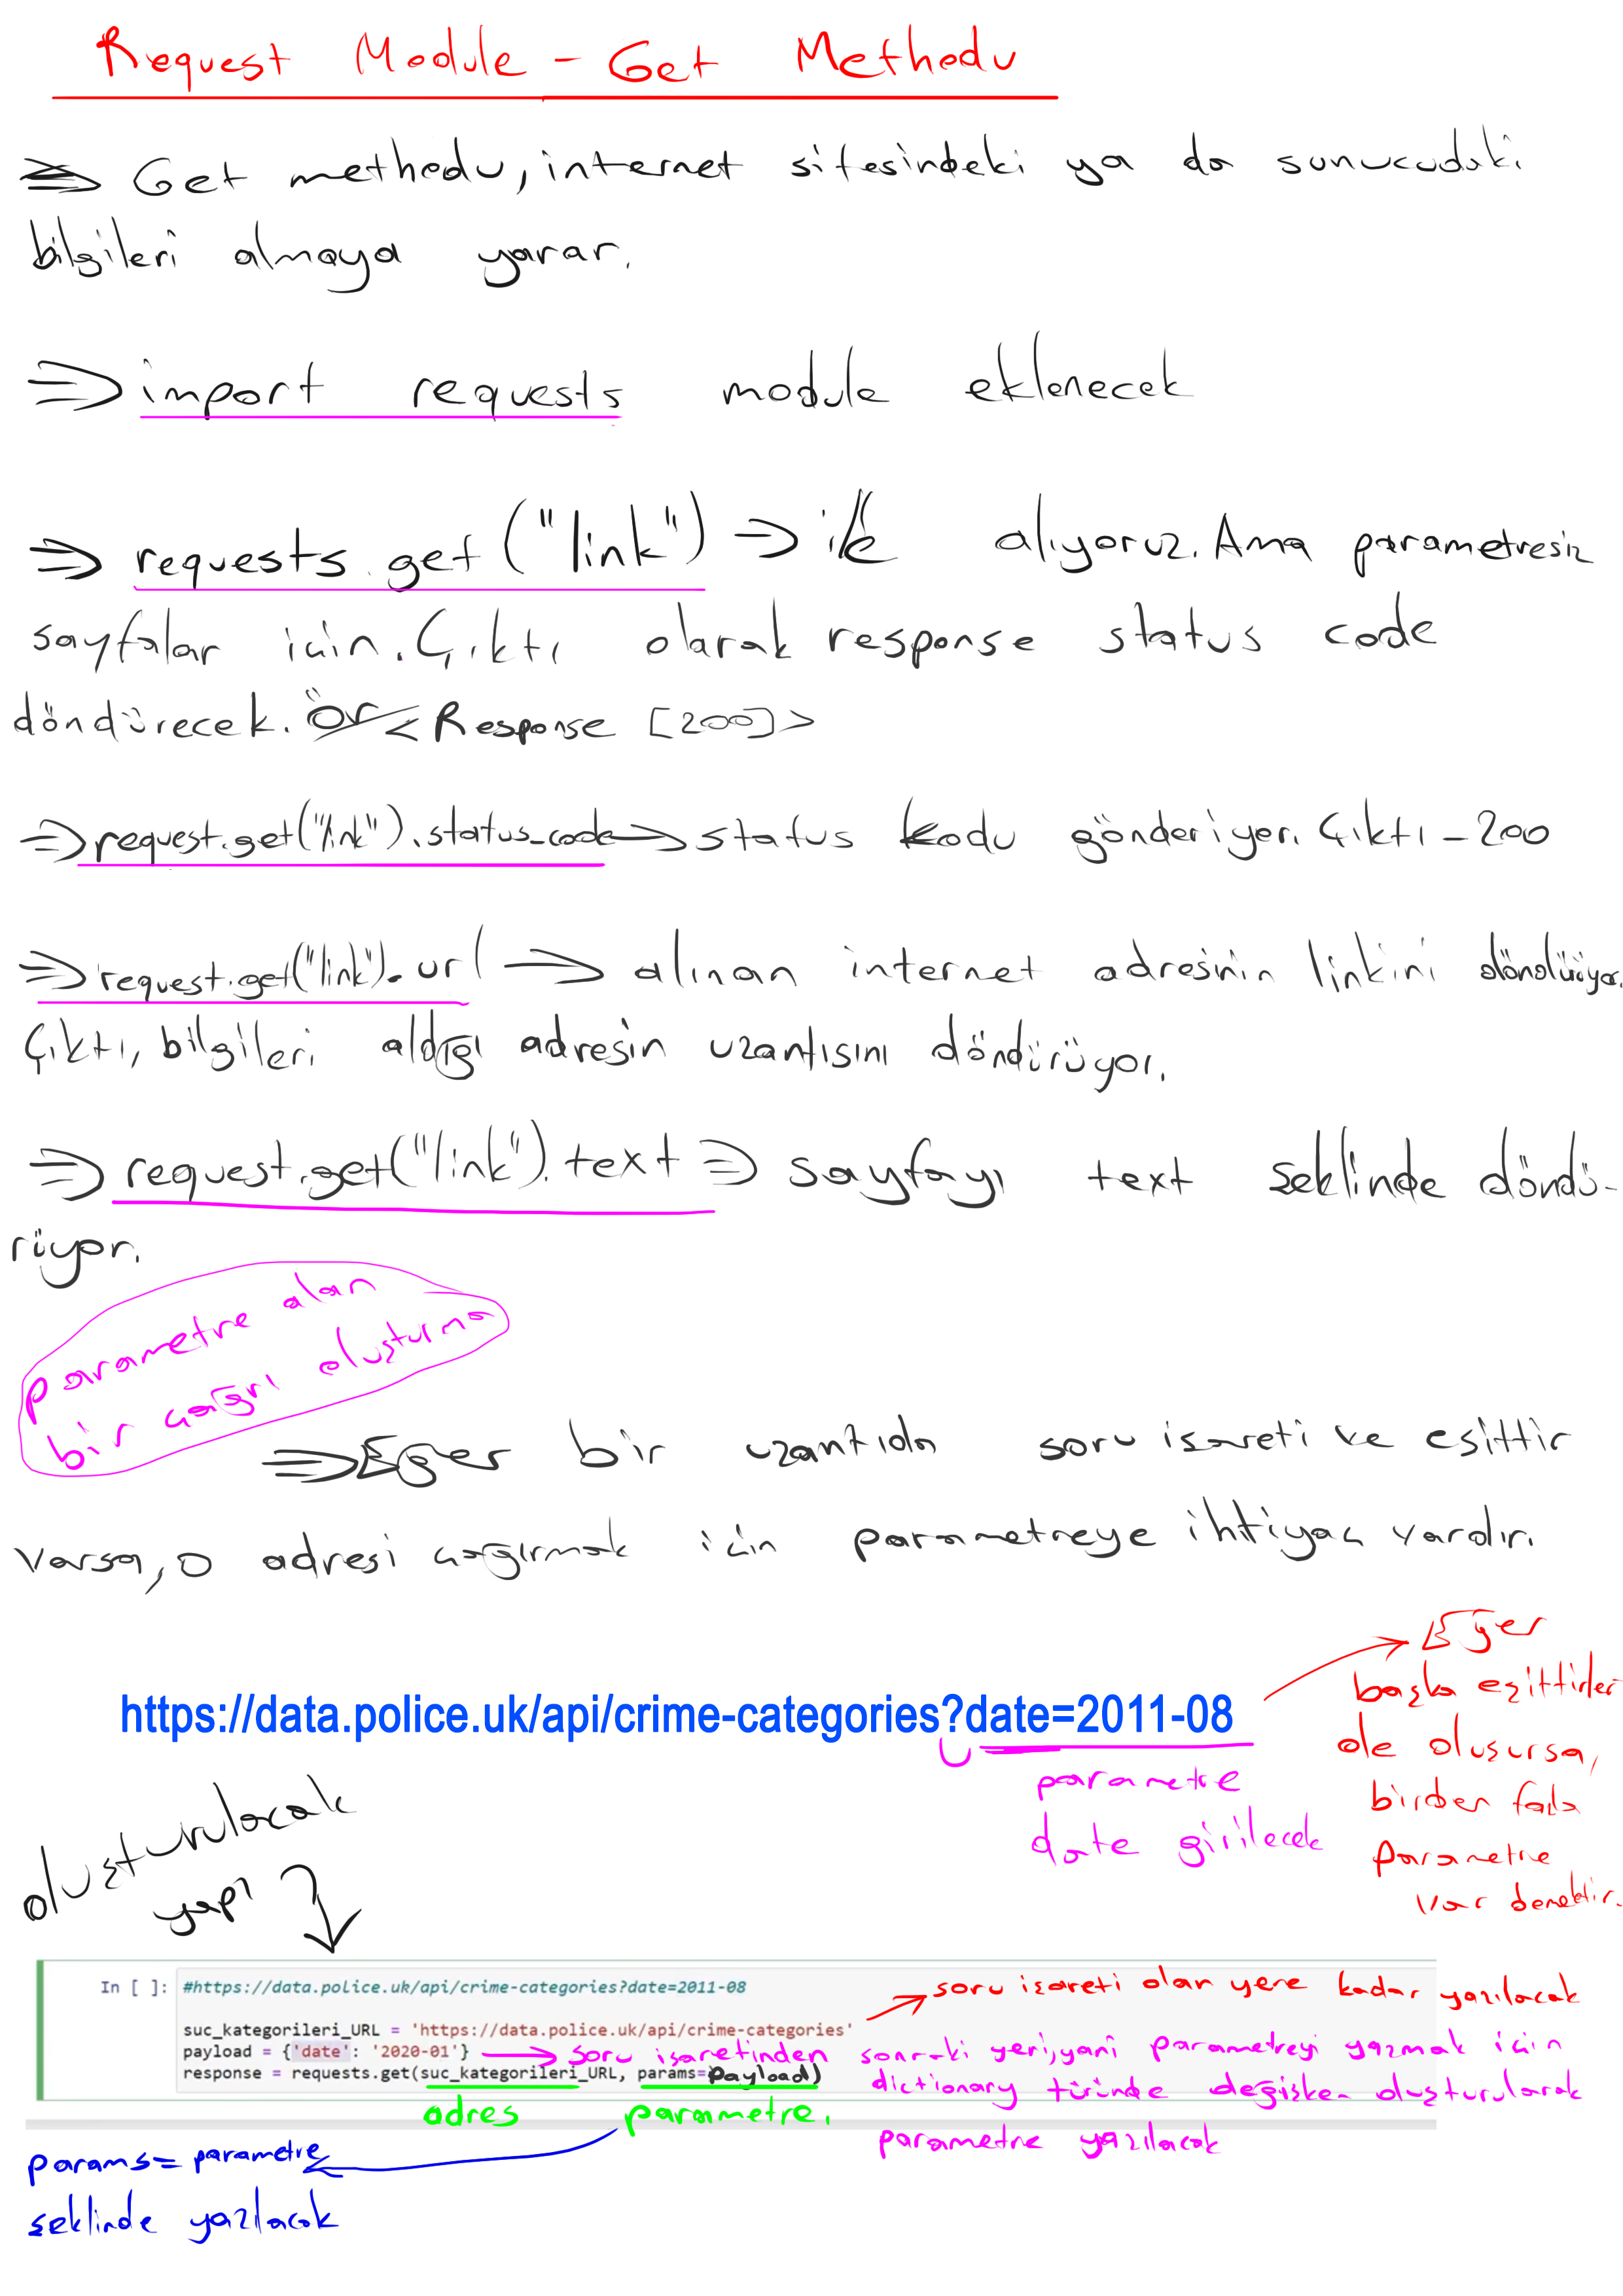 Request Module - Get Methodu
⇒ Get methodu, internet sitesindeki ya da sunucudaki
bilgileri almaya yarar.
⇒ import requests module eklenecek
⇒ requests.get("link") → ile alıyoruz. Ama parametresiz
sayfalar için. Çıktı olarak response status code
döndürecek. Ör < Response [200]>
⇒ request.get("link").status_code → status kodu gönderiyor. Çıktı - 200
⇒ request.get("link").url → alınan internet adresinin linkini döndürüyor.
Çıktı, bilgileri aldığı adresin uzantısını döndürüyor.
⇒ request.get("link").text ⇒ sayfayı text şeklinde döndü-
rüyor.
parametre alan
bir çağrı oluşturma
⇒ Eğer bir uzantıda soru işareti ve eşittir
varsa, o adresi çağırmak için parametreye ihtiyaç vardır.
https://data.police.uk/api/crime-categories?date=2011-08
parametre
date girilecek
Eğer
başka eşittirler
de oluşursa,
birden fazla
parametre
var demektir.
oluşturulacak
yapı
In [ ]: #https://data.police.uk/api/crime-categories?date=2011-08
suc_kategorileri_URL = 'https://data.police.uk/api/crime-categories'
payload = {'date': '2020-01'}
response = requests.get(suc_kategorileri_URL, params=payload)
→ soru işareti olan yere kadar yazılacak
→ soru işaretinden sonraki yeri, yani parametreyi yazmak için
dictionary türünde değişken oluşturularak
parametre yazılacak
adres parametre.
params= parametre
şeklinde yazılacak